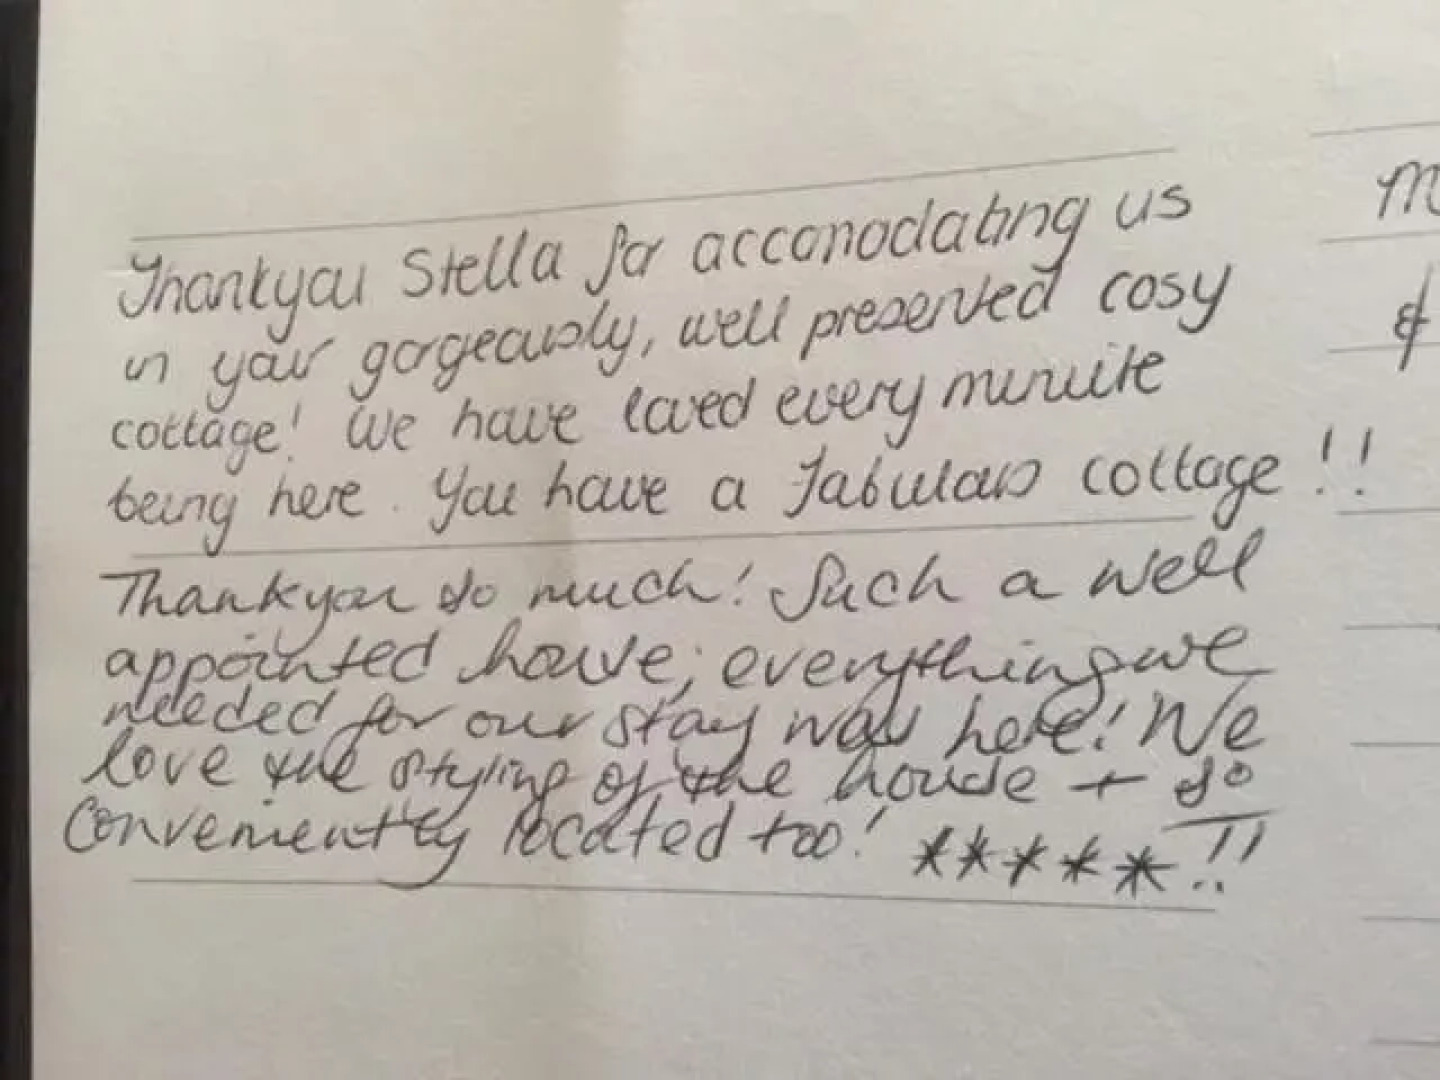 Thankyou Stella for acconodating us
in your gorgeously, well preserved cosy
cottage! We have loved every minuite
being here. You have a fabulous cottage!!
Thankyou so much! Such a well
appointed house; everything we
needed for our stay was here! We
love the styling of the house + so
conveniently located too! *****!!
M
&